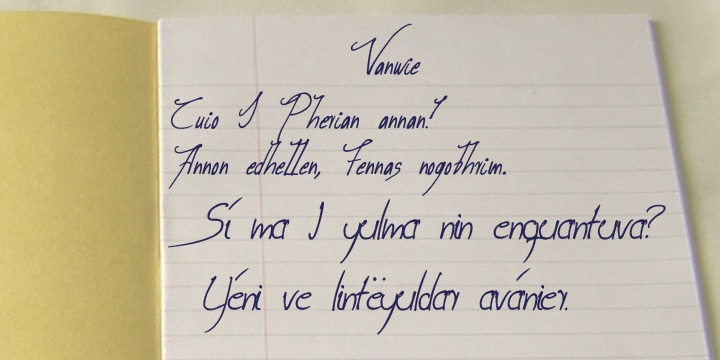 Vanwie
Cuio I Pherian annan!
Annon edhellen, Fennas nogothrim.
Sí ma I yulma nin enquantuva?
Yéni ve lintëyuldar avánier.